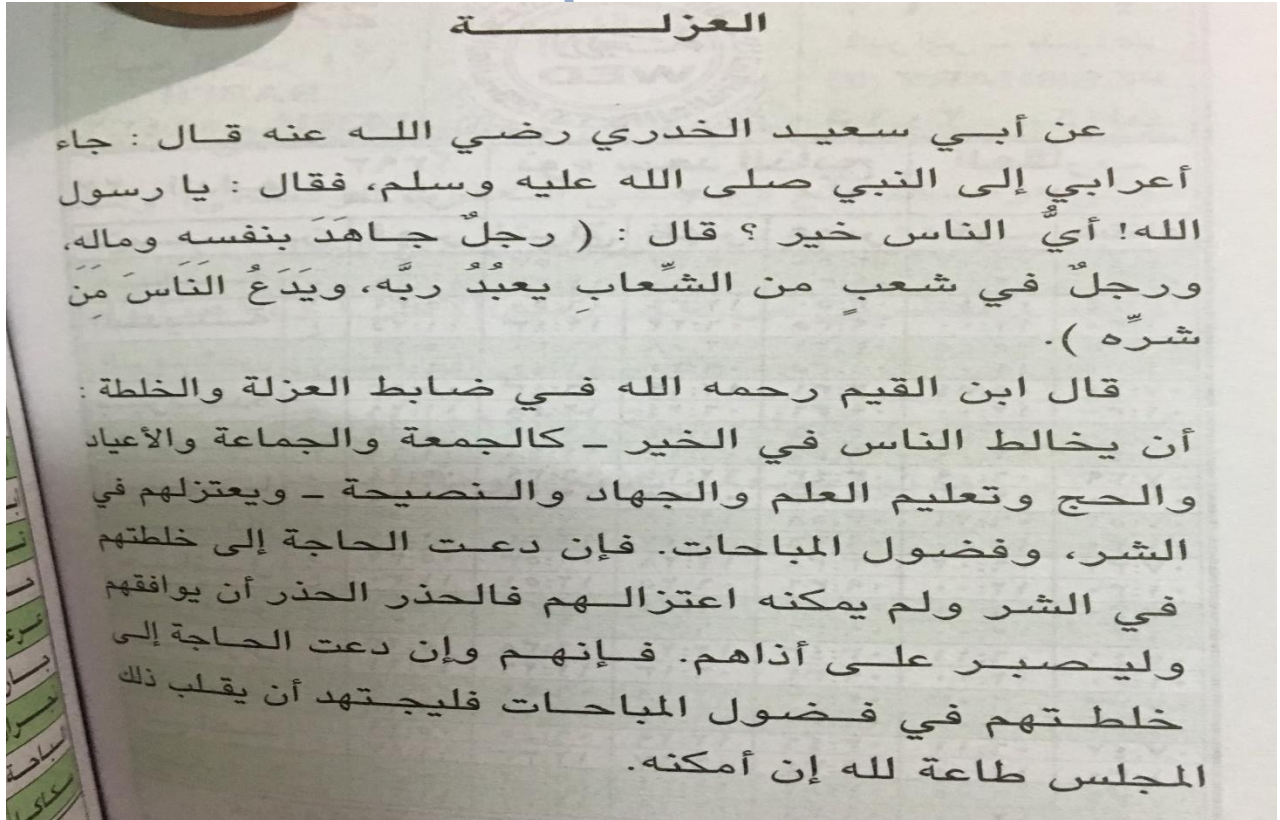 العزلة
عن أبي سعيد الخدري رضي الله عنه قال : جاء
أعرابي إلى النبي صلى الله عليه وسلم، فقال : يا رسول
الله! أيُّ الناس خير ؟ قال : ( رجلٌ جاهَدَ بنفسه وماله،
ورجلٌ في شعبٍ من الشِّعابِ يعبُدُ ربَّه، ويَدَعُ النَاسَ مِنَ
شرِّه ).
قال ابن القيم رحمه الله في ضابط العزلة والخلطة :
أن يخالط الناس في الخير - كالجمعة والجماعة والأعياد
والحج وتعليم العلم والجهاد والنصيحة - ويعتزلهم في
الشر، وفضول المباحات. فإن دعت الحاجة إلى خلطتهم
في الشر ولم يمكنه اعتزالهم فالحذر الحذر أن يوافقهم
وليصبر على أذاهم. فإنهم وإن دعت الحاجة إلى
خلطتهم في فضول المباحات فليجتهد أن يقلب ذلك
المجلس طاعة لله إن أمكنه.